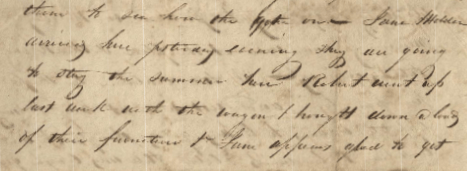 them to see how the get on Jane
arrived here yesterday evening they are going
to stay the summer here Robert went up
last week with the wagon & brought down a load
of their furniture & Jane appears glad to get